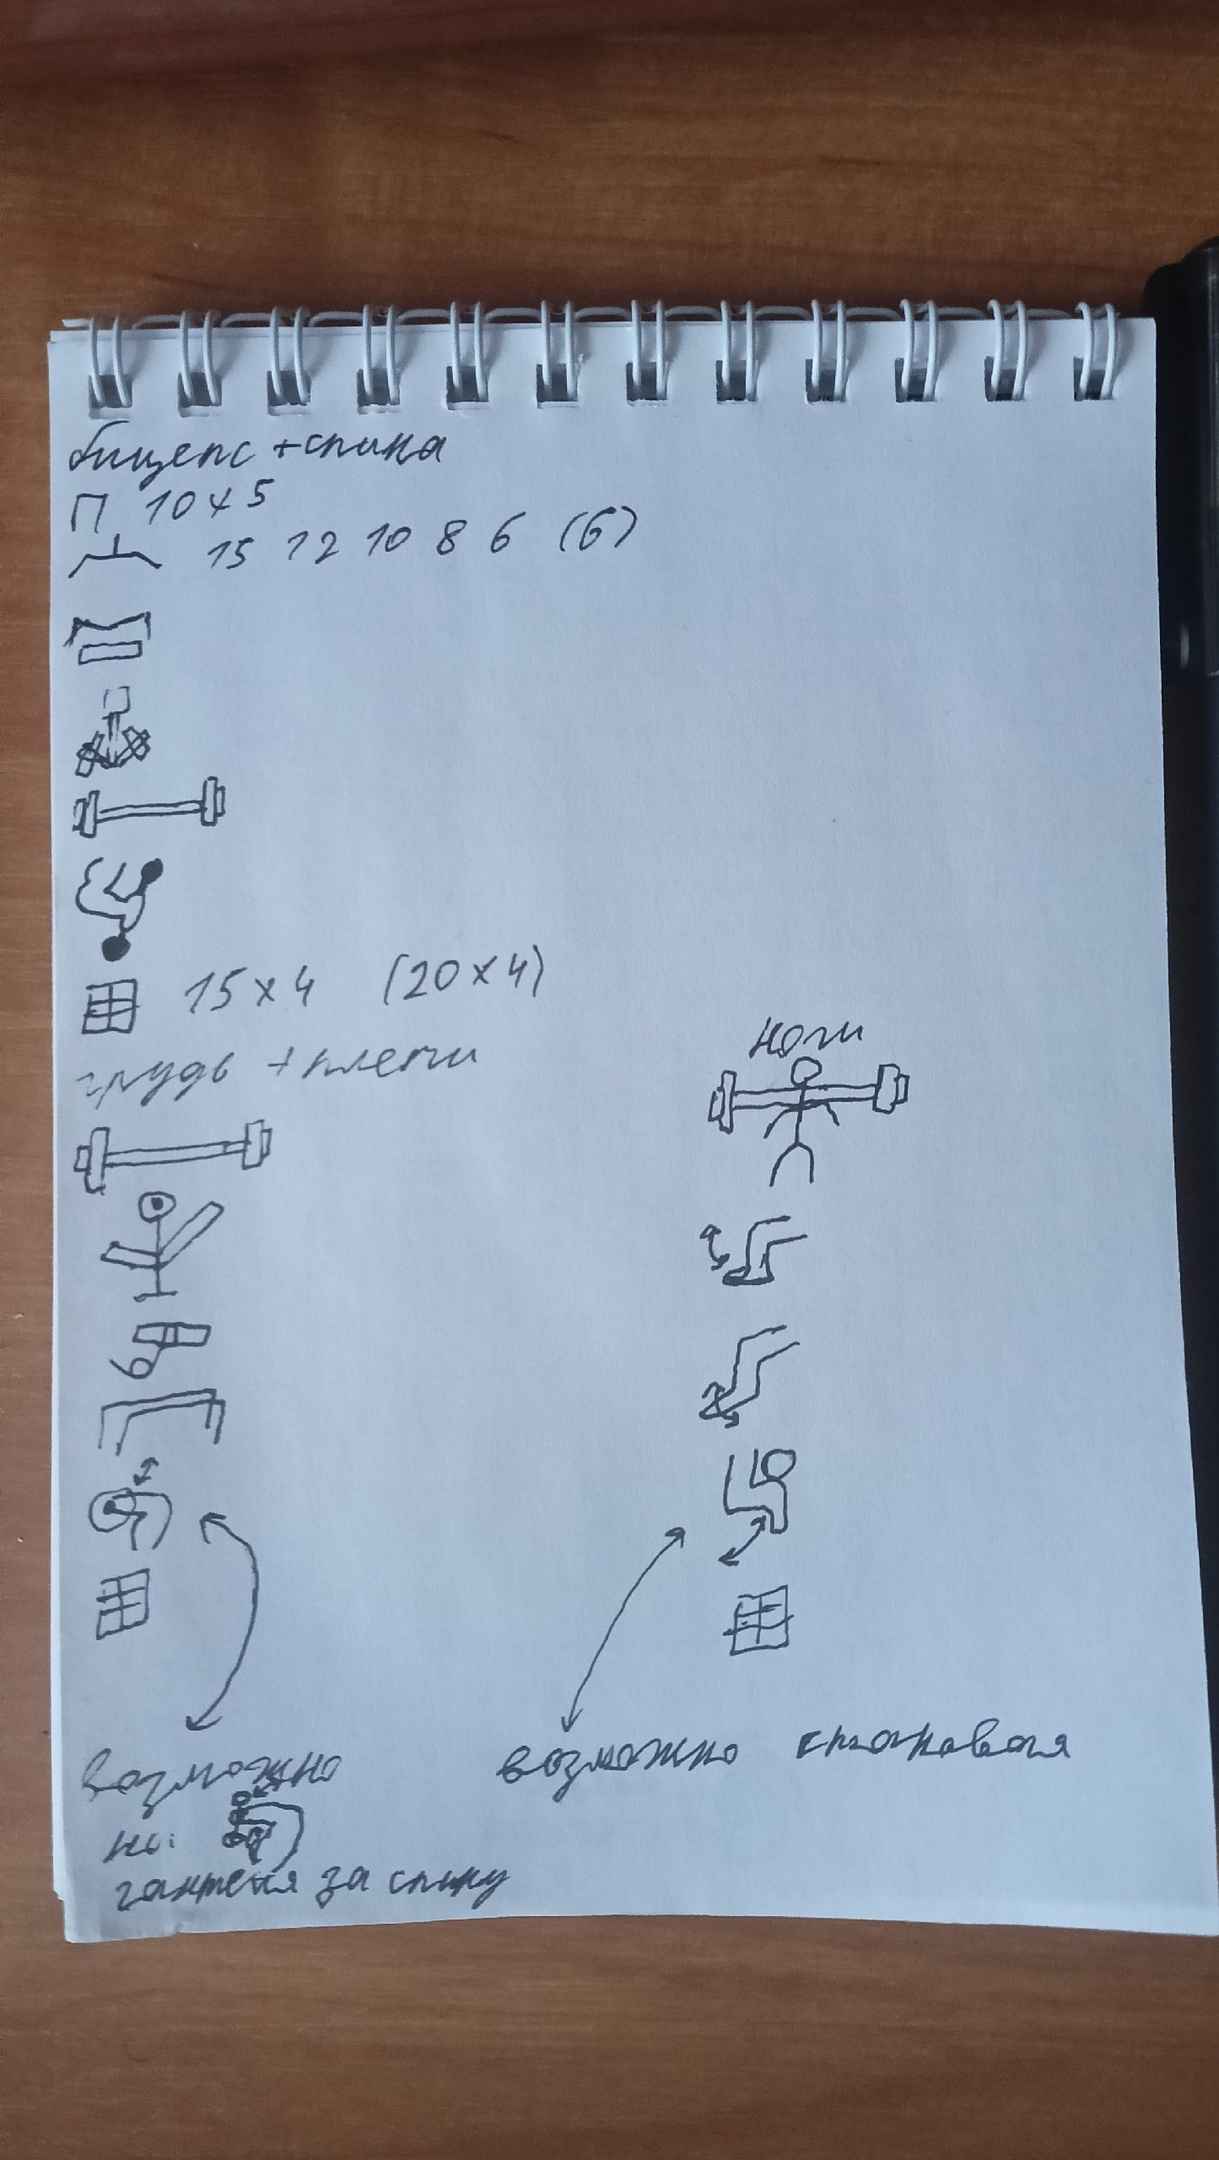 бицепс + спина
П 10 х 5
15 12 10 8 6 (6)
15 х 4 (20 х 4)
грудь + плечи
ноги
возможно
возможно становая
на:
за спину